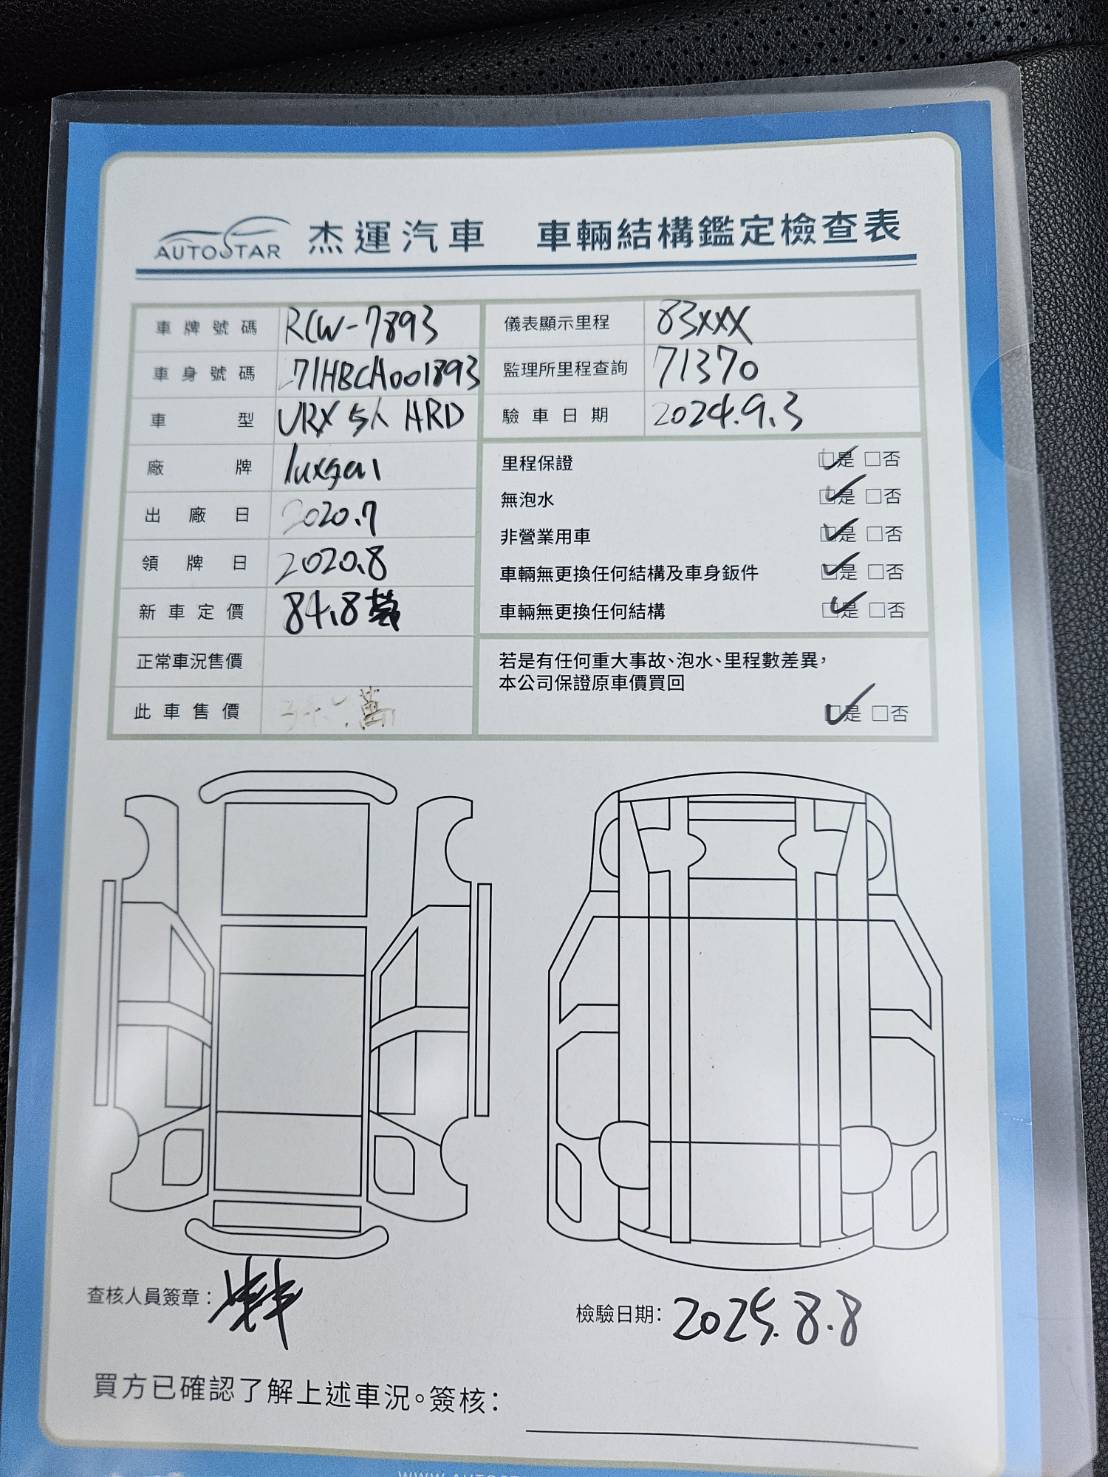 AUTOSTAR 杰運汽車 車輛結構鑑定檢查表
車牌號碼 RCW-7893
車身號碼 71HBCA001893
車型 URX 5人 HRD
廠牌 luxgen
出廠日 2020.7
領牌日 2020.8
新車定價 84.8萬
正常車況售價
此車售價 萬
儀表顯示里程 83xxx
監理所里程查詢 71370
驗車日期 2024.9.3
里程保證 ☑是 □否
無泡水 ☑是 □否
非營業用車 ☑是 □否
車輛無更換任何結構及車身鈑件 ☑是 □否
車輛無更換任何結構 ☑是 □否
若是有任何重大事故、泡水、里程數差異，
本公司保證原車價買回
☑是 □否
查核人員簽章：
檢驗日期： 2025.8.8
買方已確認了解上述車況。簽核：